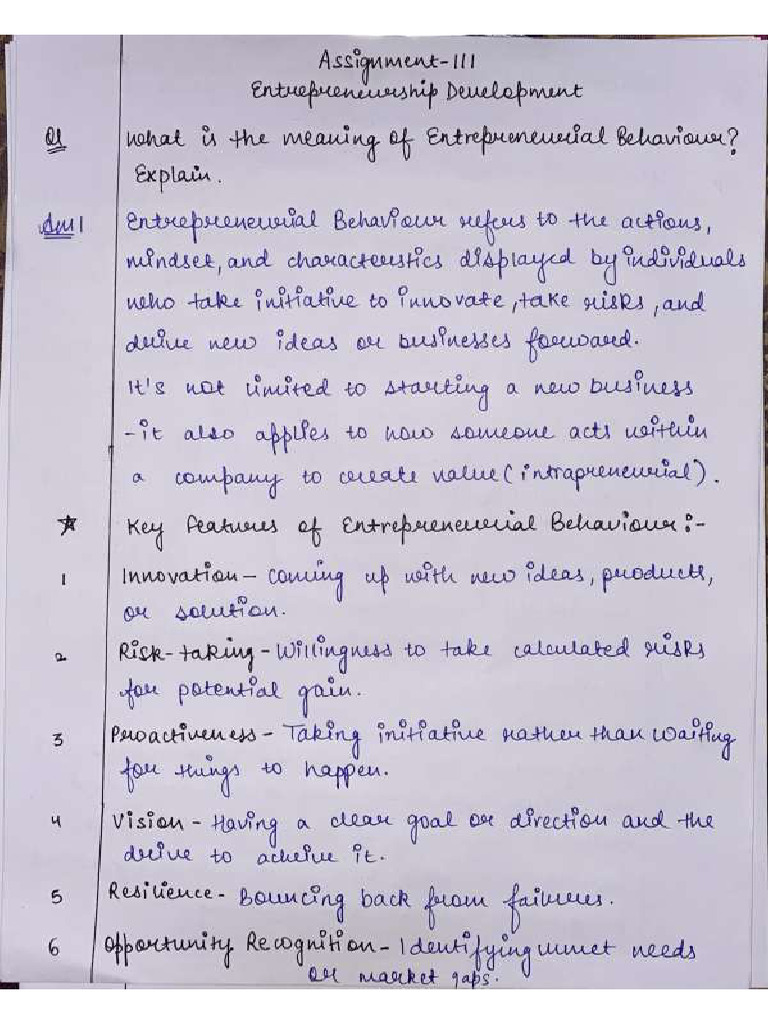 Assignment-III
Entrepreneurship Development
Q1 What is the meaning of Entrepreneurial Behaviour?
Explain.
Ans1 Entrepreneurial Behaviour refers to the actions,
mindset, and characteristics displayed by individuals
who take initiative to innovate, take risks, and
drive new ideas or businesses forward.
It's not limited to starting a new business
-it also applies to how someone acts within
a company to create value (intrapreneurial).
☆ Key features of Entrepreneurial Behaviour:-
1 Innovation - Coming up with new ideas, products,
or solution.
2 Risk-taking - Willingness to take calculated risks
for potential gain.
3 Proactiveness - Taking initiative rather than waiting
for things to happen.
4 Vision - Having a clear goal or direction and the
drive to acheive it.
5 Resilience - Bouncing back from failures.
6 Opportunity Recognition - Identifying unmet needs
or market gaps.